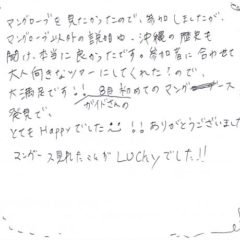 マングローブを見たかったので、参加しましたが、
マングローブ以外の説明や、沖縄の歴史も
聞け、本当に良かったです。参加者に合わせて
大人向きなツアーにしてくれたので、
大満足です!! 8月初めてのマングース
発見で、ガイドさんの
とてもHappyでした!! ありがとうございました
マングース見れたくんがLUCHYでした!!